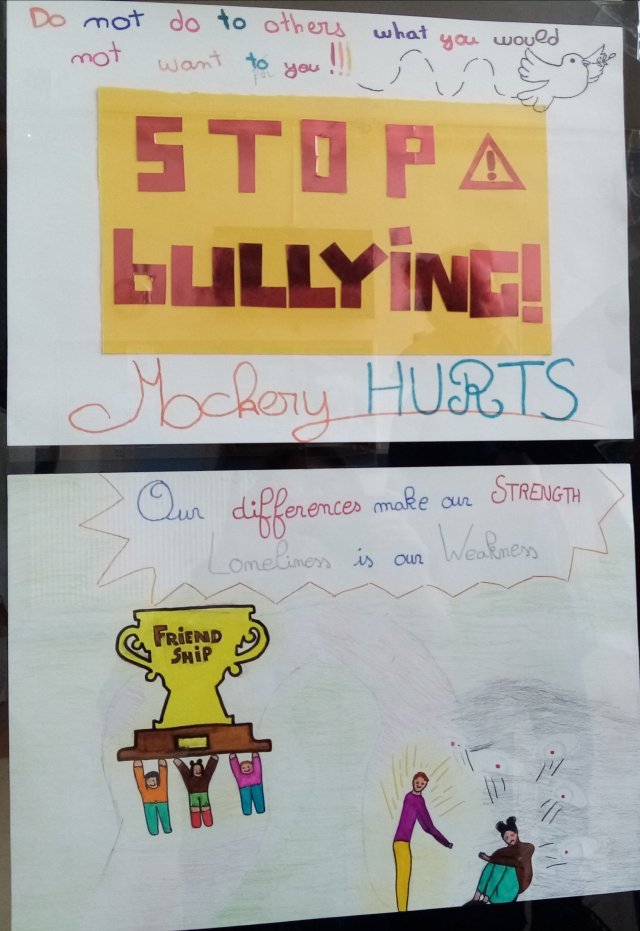 Do not do to others what you would
not want to you!!!
STOP
bULLYiNG!
Mockery HURTS
Our differences make our STRENGTH
Loneliness is our Weakness
FRiEND
SHiP